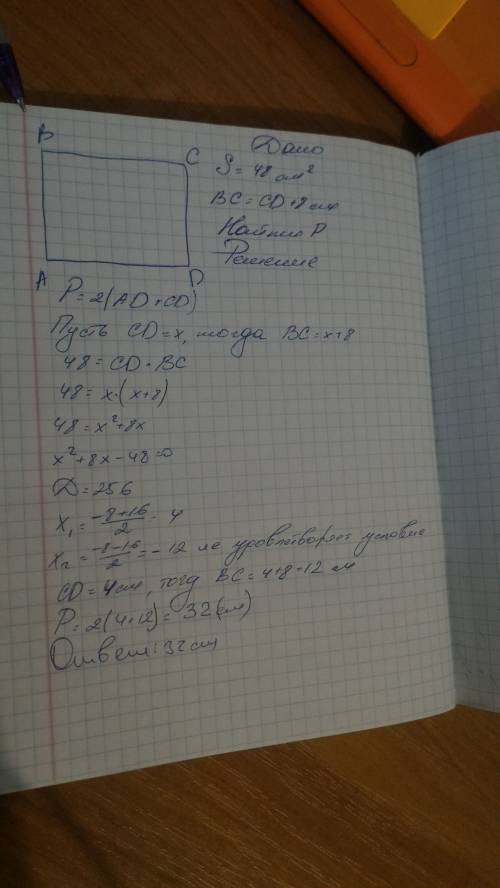 B
C
A
D
Дано
S = 48 см²
BC = CD + 8 см
Найти P
Решение
P = 2(AD + CD)
Пусть CD = x, тогда BC = x+8
48 = CD · BC
48 = x·(x+8)
48 = x² + 8x
x² + 8x - 48 = 0
D = 256
x₁ = (-8+16)/2 = 4
x₂ = (-8-16)/2 = -12 не уровлетворяет условие
CD = 4 см, тогд BC = 4+8=12 см
P = 2(4+12) = 32(см)
Ответ: 32 см